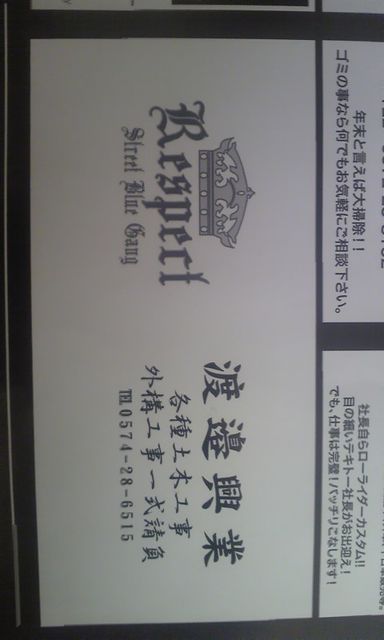 Respect
Street Blue Gang
渡邉興業
各種土木工事
外構工事一式請負
TEL0574-28-6515
年末と言えば大掃除!!
ゴミの事なら何でもお気軽にご相談下さい。
社長自らローライダーカスタム!!
目の細いテキトー社長がお出迎え!
でも、仕事は完璧!バッチリこなします!